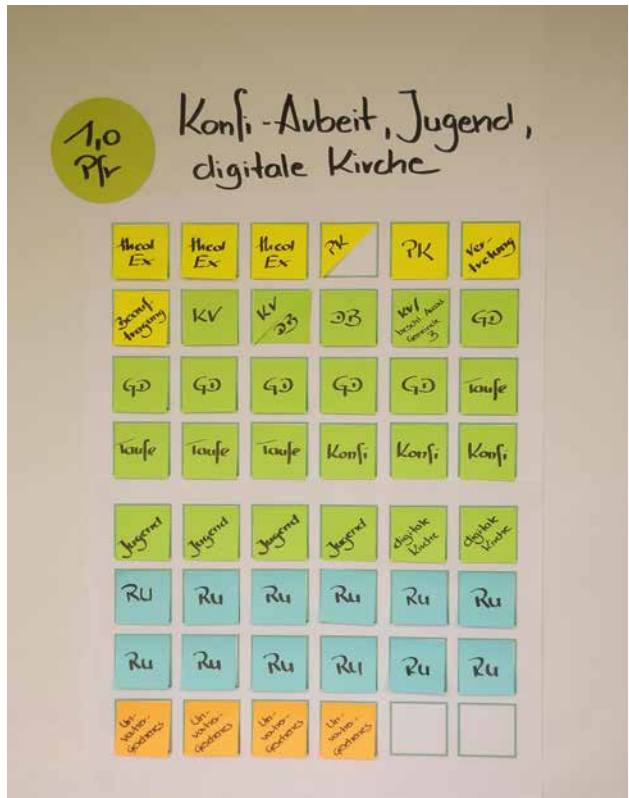 1,0
Pfr
Konfi-Arbeit, Jugend,
digitale Kirche
theol
Ex
theol
Ex
theol
Ex
PK
PK
Ver-
tretung
Beauf
tragung
KV
KV
DB
DB
KV/
beschl. Aussch
Gemeinde
3
GD
GD
GD
GD
GD
GD
Taufe
Taufe
Taufe
Taufe
Konfi
Konfi
Konfi
Jugend
Jugend
Jugend
Jugend
digitale
Kirche
digitale
Kirche
RU
RU
RU
RU
RU
RU
RU
RU
RU
RU
RU
RU
Un-
vorher-
gesehenes
Un-
vorher-
gesehenes
Un-
vorher-
gesehenes
Un-
vorher-
gesehenes